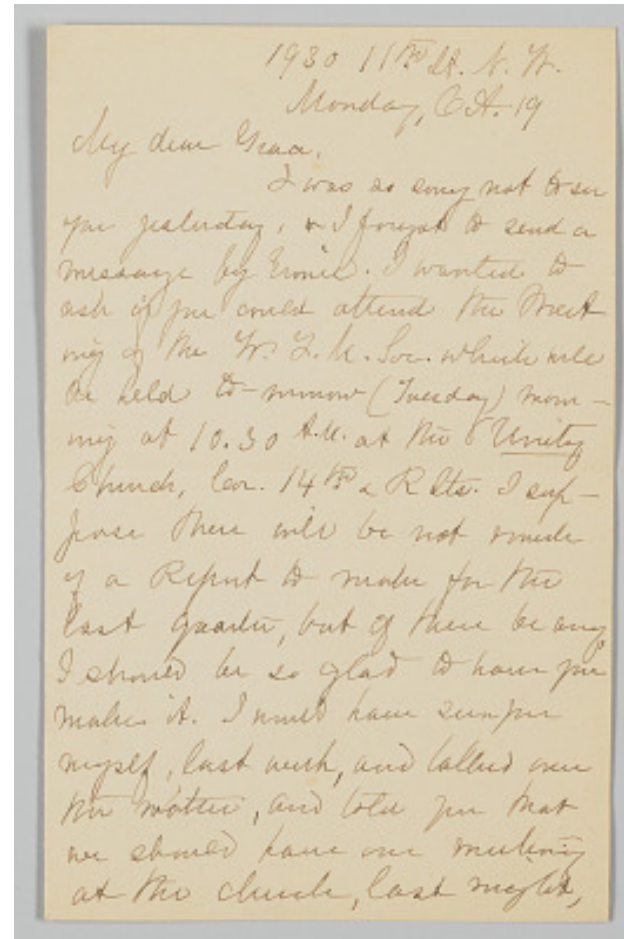 1930 11th St. N. W.
Monday, Oct. 19
My dear Grace,
I was so sorry not to see
you yesterday, & I forgot to send a
message by Ernie. I wanted to
ask if you could attend the Meet
ing of the W. F. M. Soc. which will
be held to-morrow (Tuesday) morn-
ing at 10.30 A.M. at the Unity
Church, Cor. 14th & R Sts. I sup-
pose there will be not much
of a Report to make for the
last quarter, but if there be any
I should be so glad to have you
make it. I would have seen you
myself, last week, and talked over
the matter, and told you that
we should have our meeting
at the church, last night,